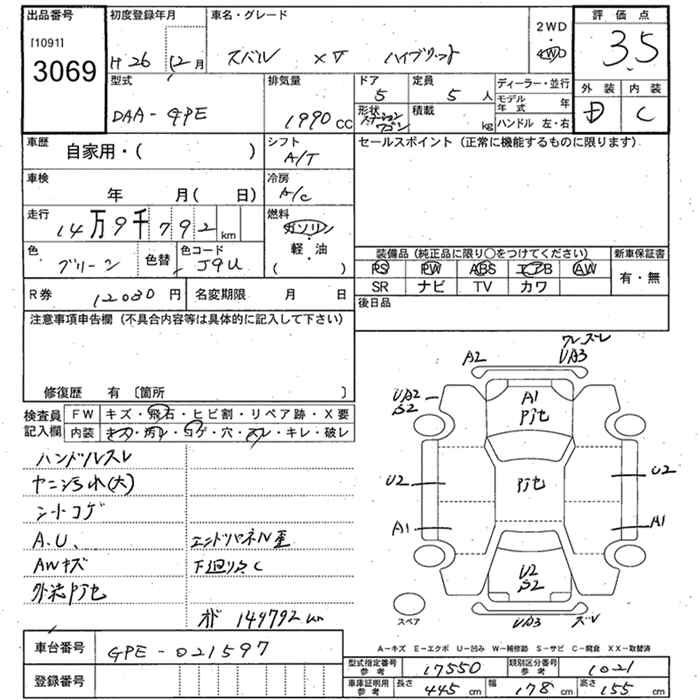 出品番号
[1091]
3069
初度登録年月
H 26 年 12 月
車名・グレード
スバル XV ハイブリッド
2WD
・
4WD
評価点
3.5
外装 内装
D C
型式
DAA-GPE
排気量
1990 cc
ドア
5
定員
5 人
形状
ステーションワゴン
積載
kg
ディーラー・並行
モデル年式 年
ハンドル 左・右
車歴
自家用・( )
シフト
A/T
セールスポイント (正常に機能するものに限ります)
車検
年 月( 日)
冷房
A/C
走行
14万9千792 km
燃料
ガソリン
・
軽・油
( )
色
グリーン
色替
色コード
J9U
装備品 (純正品に限り○をつけてください)
新車保証書
PS PW ABS エアB AW
有・無
SR ナビ TV カワ
R券 12030 円
名変期限 月 日
後日品
注意事項申告欄 (不具合内容等は具体的に記入して下さい)
修復歴 有 〔箇所 〕
検査員記入欄
FW キズ・飛石・ヒビ割・リペア跡・X要
内装 キズ・汚れ・コゲ・穴・スレ・キレ・破レ
ハンドルスレ
ヤニ汚れ(大)
シートコゲ
A.U.
エンドパネル歪
AWキズ
下廻り点C
外装PJ他
オド 149792 km
車台番号
GPE-021597
登録番号
A2
UA3
UA2
S2
A1
PJ他
U2
U2
PJ他
A1
A1
U2
S2
UA3
スペア
A−キズ E−エクボ U−凹み W−補修跡 S−サビ C−腐食 XX−取替済
型式指定番号 参考 17550
類別区分番号 参考 1021
車庫証明用 参考 長さ 445 cm 幅 178 cm 高さ 155 cm